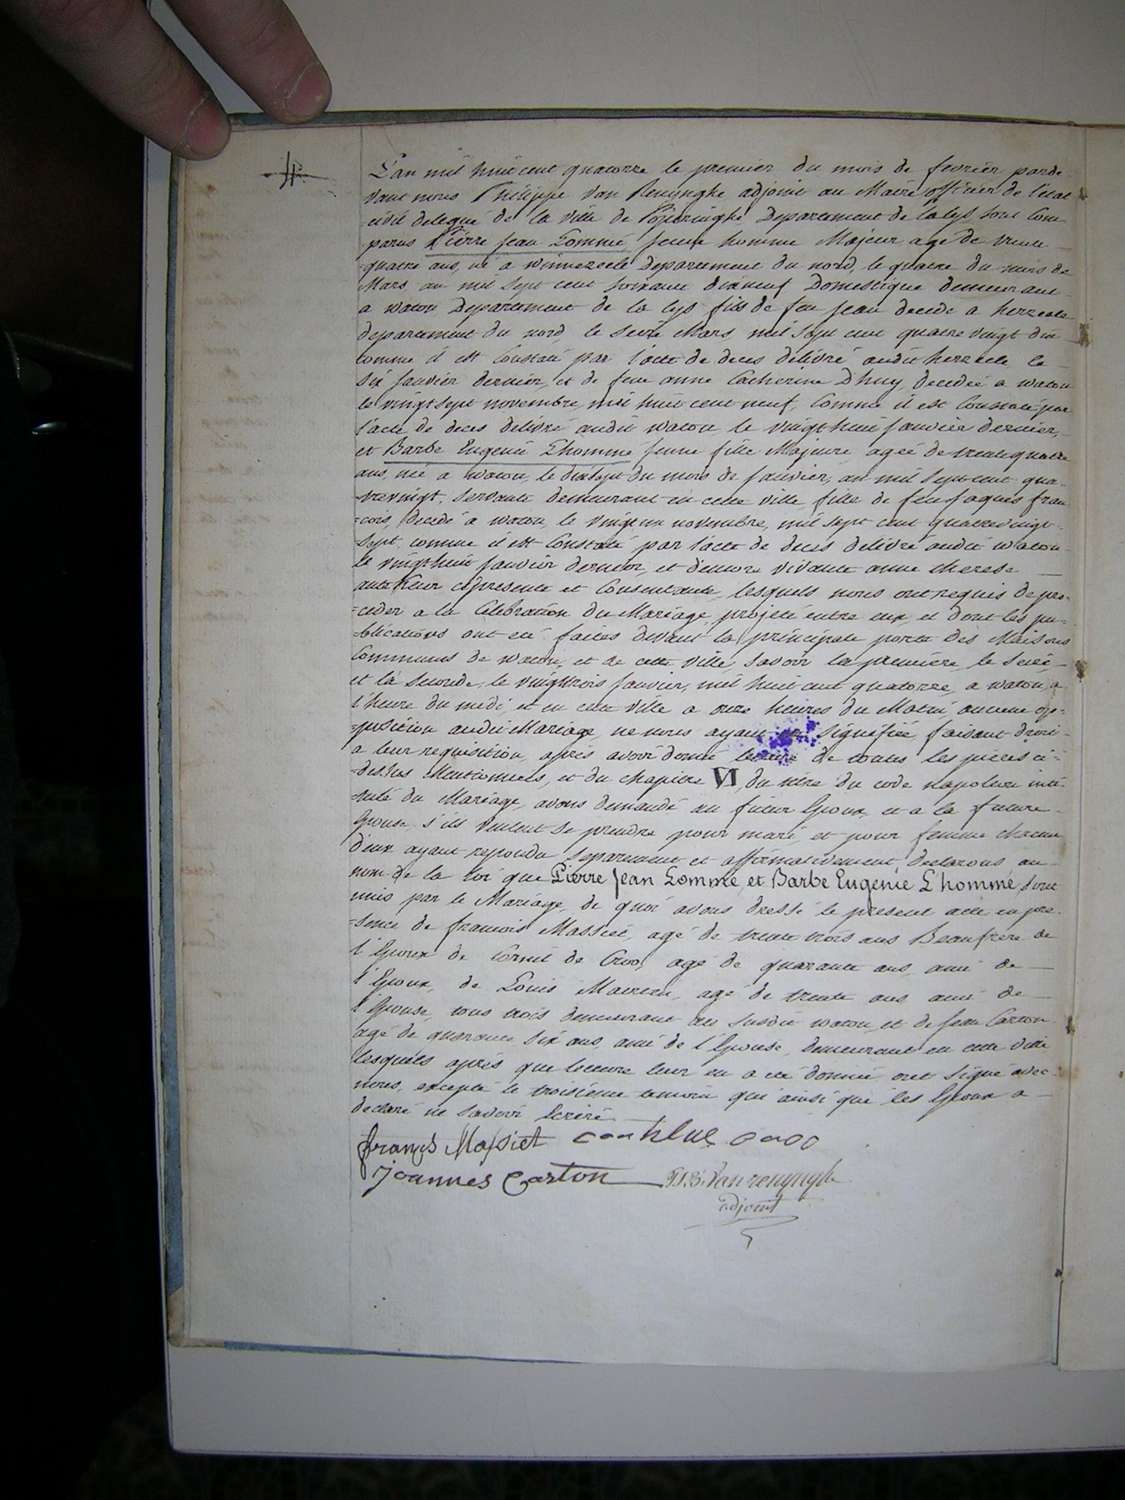 4.
L'an mil huit cent quatorze le premier du mois de fevrier parde-
vant nous Philippe Van Renynghe adjoint au Maire officier de l'etat
civil delegué de la ville de Poperinghe Departement de la Lys sont Com-
parus Pierre Jean Lomme, jeune homme Majeur, agé de trente
quatre ans, né a Winnezeele Departement du nord, le quatre du mois de
Mars an mil sept cent soixante dixneuf Domestique demeurant
a watou Departement de la Lys fils de feu Jean decedé a herzeele
departement du nord, le seize Mars, mil sept cent quatre vingt dix
comme il est constaté par l'acte de deces délivré audit herzeele le
six Janvier dernier, et de feue anne Catherine D'huy, decedée a watou
le vingt sept novembre, mil huit cent neuf, Comme il est Constaté par
l'acte de deces délivré audit watou le vingt huit janvier dernier,
et Barbe Eugenie Lhomme jeune fille Majeure, agée de trente quatre
ans, née a watou, le dixsept du mois de Janvier, an mil sept cent qua-
trevingt, servante demeurant en cette ville, fille de feu Jaques fran-
cois, decedé a watou, le vingt un novembre, mil sept cent quatrevingt
sept, comme il est Constaté par l'acte de deces délivré audit watou
le vingthuit Janvier dernier, et d'encore vivante anne therese
cy presente et Consentante, lesquels nous ont requis de pro-
-ceder a la Célébration du Mariage projeté entre eux, et dont les pu-
-blications ont eté faites devant la principale porte des Maisons
Communes de watou, et de cette ville, savoir la premiere, le seize
et la seconde, le vingttrois Janvier, mil huit cent quatorze, a watou, a
l'heure du midi, et en cette ville a onze heures du Matin aucune op-
-position audit Mariage ne nous ayant eté signifiée faisant droit
a leur requisition, après avoir donné lecture de toutes les pieces ci-
-dessus Mentionnées, et du chapitre VI, du titre du code napoleon inti-
-tulé du Mariage, avons demandé au futur Epoux, et a la future
Epouse s'ils veulent se prendre pour mari, et pour femme chacun
d'eux ayant repondu separement et affirmativement declarons au
nom de la loi que Pierre Jean Lomme, et Barbe Eugenie L'homme, sont
unis par le Mariage, de quoi avons dressé le present acte en pre-
-sence de francois Massiet, agé de trente trois ans Beaufrère de
l'Epoux de Cornil de Croo, agé de quarante ans, ami de
l'Epoux, de Louis agé de trente ans ami de
l'Epouse, tous trois demeurant au susdit watou, et de Jean Carton
agé de quarante six ans, ami de l'Epouse, demeurant en cette ville
lesquels après que lecture leur en a eté donnée ont signé avec
nous, excepté le troisième temoin qui ainsi que les Epoux a
declaré ne savoir Ecrire.
frans Massiet
Joannes Carton Vanrenynghe
adjoint